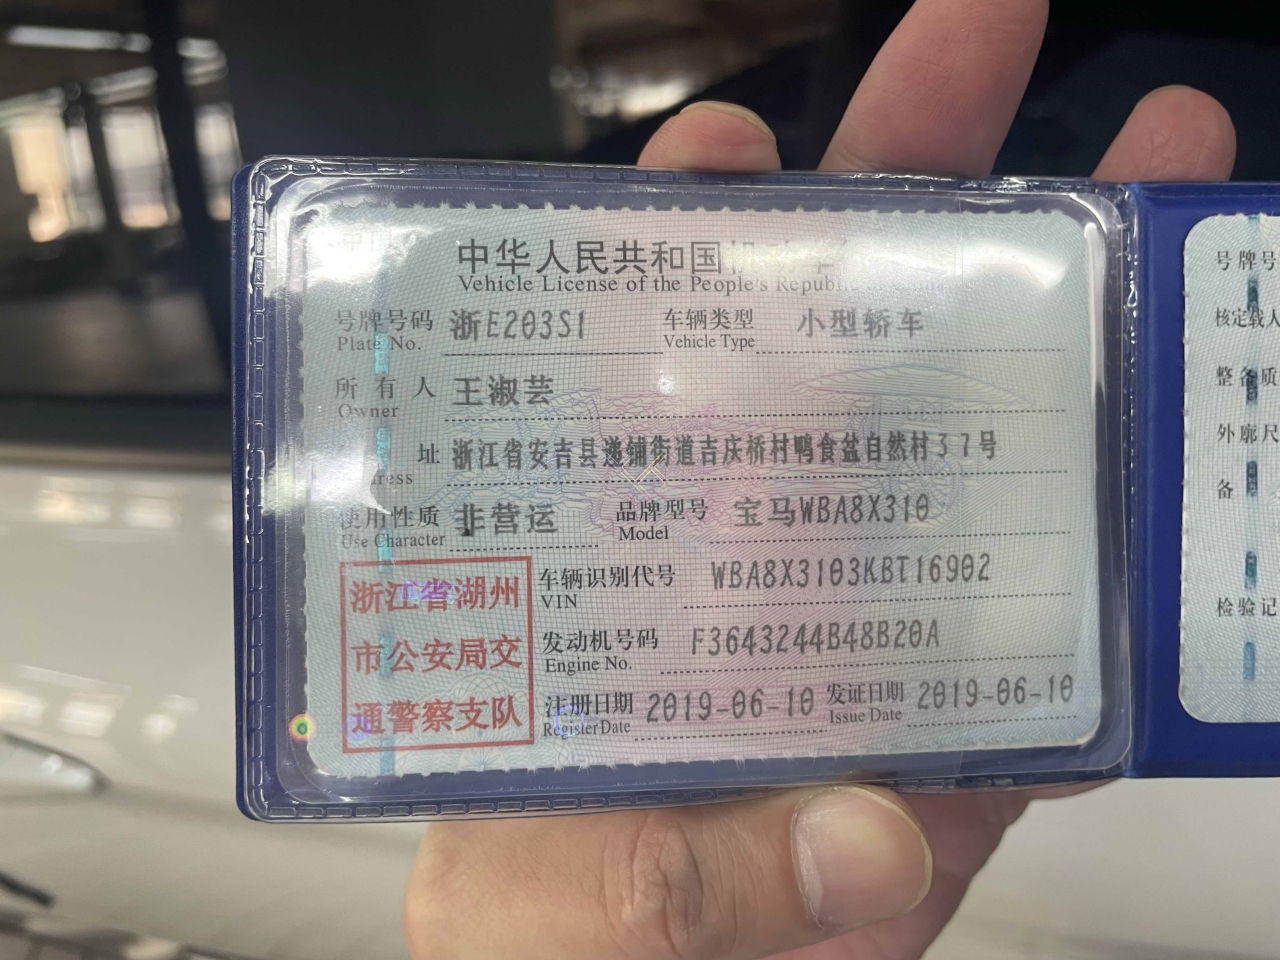 中华人民共和国
Vehicle License of the People's Republic
号牌号码 浙E203S1 车辆类型 小型轿车
Plate No. Vehicle Type
所有人 王淑芸
Owner
址 浙江省安吉县递铺街道吉庆桥村鸭食盆自然村37号
ress
使用性质 非营运 品牌型号 宝马WBA8X310
Use Character Model
浙江省湖州
市公安局交
通警察支队
车辆识别代号 WBA8X3103KBT16902
VIN
发动机号码 F3643244B48B20A
Engine No.
注册日期 2019-06-10 发证日期 2019-06-10
Register Date Issue Date
号牌号
核定载人
整备质
外廓尺
备
检验记